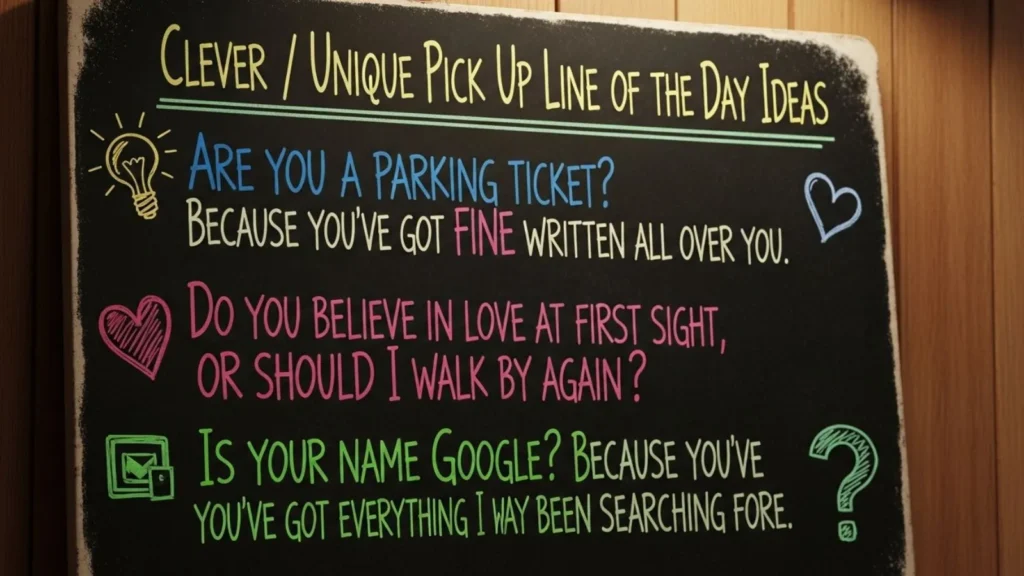 Clever / Unique Pick Up Line of the Day Ideas
Are you a parking ticket?
Because you've got fine written all over you.
Do you believe in love at first sight,
or should I walk by again?
Is your name Google? Because you've
you've got everything I way been searching fore.